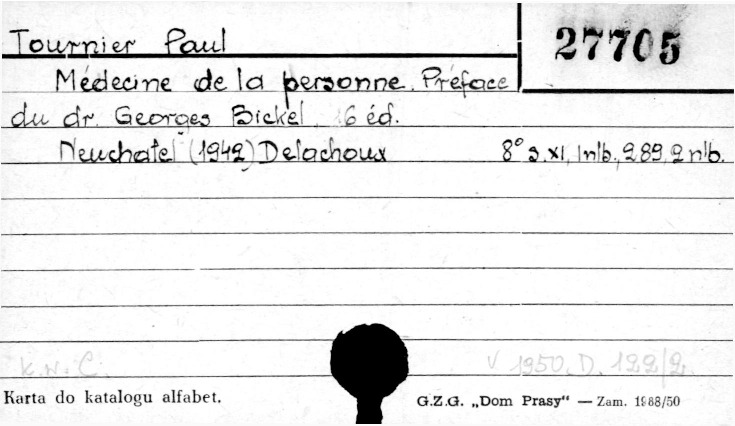 Tournier Paul
27705
Médecine de la personne. Préface
du dr. Georges Bickel. 6 éd.
Neuchatel (1942) Delachoux
8° s. XI, 1 nlb., 289, 2 nlb.
K.N.C.
V 1950. D. 122/2.
Karta do katalogu alfabet.
G.Z.G. „Dom Prasy“ — Zam. 1988/50